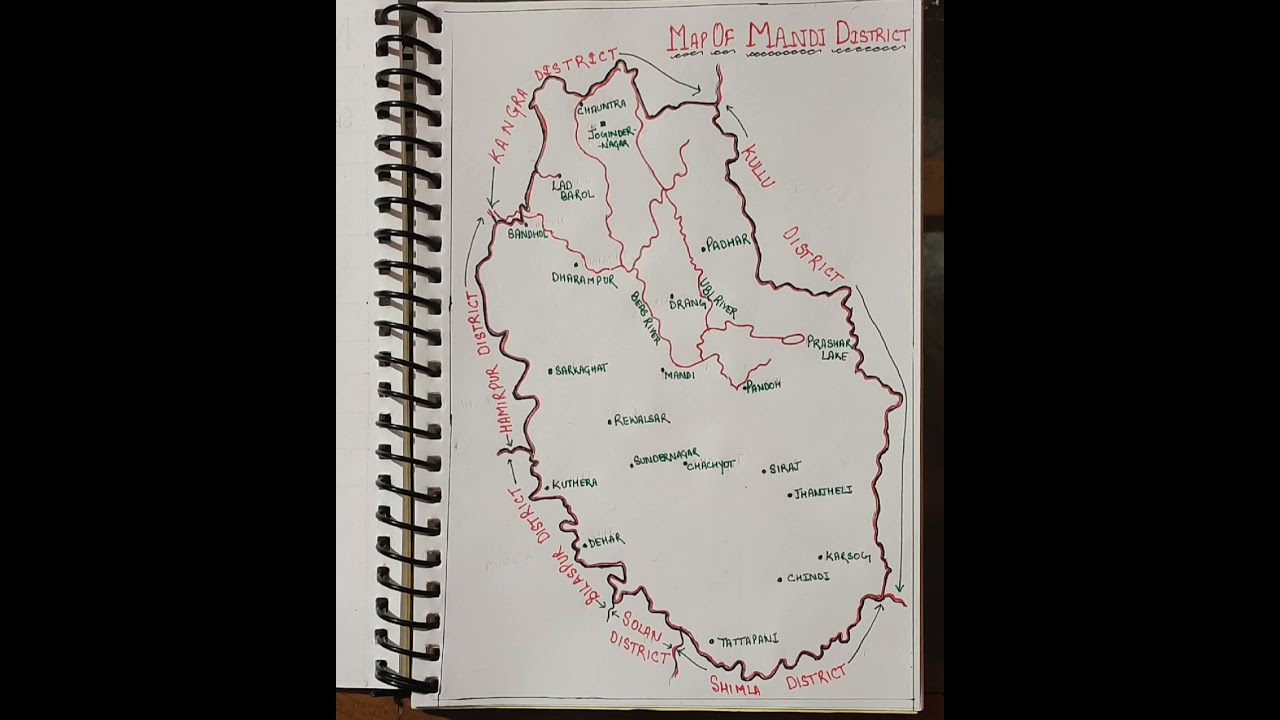 MAP OF MANDI DISTRICT
KANGRA DISTRICT
CHAUNTRA
JOGINDER-
-NAGAR
KULLU DISTRICT
LAD
BAROL
SANDHOL
PADHAR
DHARAMPUR
DRANG
UBL RIVER
BEAS RIVER
PRASHAR
LAKE
HAMIRPUR DISTRICT
SARKAGHAT
MANDI
PANDOH
REWALSAR
SUNDERNAGAR
CHACHYOT
SIRAJ
KUTHERA
JHANJHELI
BILASPUR DISTRICT
DEHAR
KARSOG
CHINDI
SOLAN
DISTRICT
TATTAPANI
SHIMLA DISTRICT